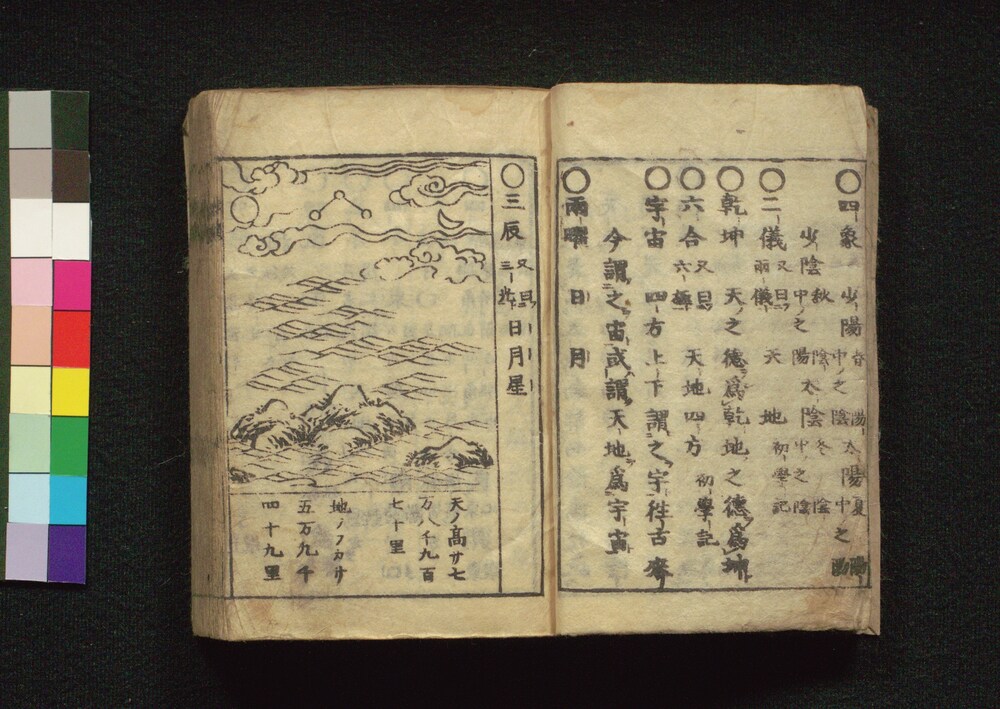 ○四象 少陽 春 陽中之陰 太陽 夏 陽中之陽
少陰 秋 陰中之陽 太陰 冬 陰中之陰
○二儀 又曰両儀 天地 初学記
○乾坤 天之徳為乾地之徳為坤
○六合 又曰六極 天地四方 初學記
○宇宙 四方上下謂之宇往古來
今謂之宙或謂天地爲宇宙
○両曜 日月
○三辰 又曰三光 日月星
天ノ高サ七
万八千九百
七十里
地ノフカサ
五万九千
四十九里